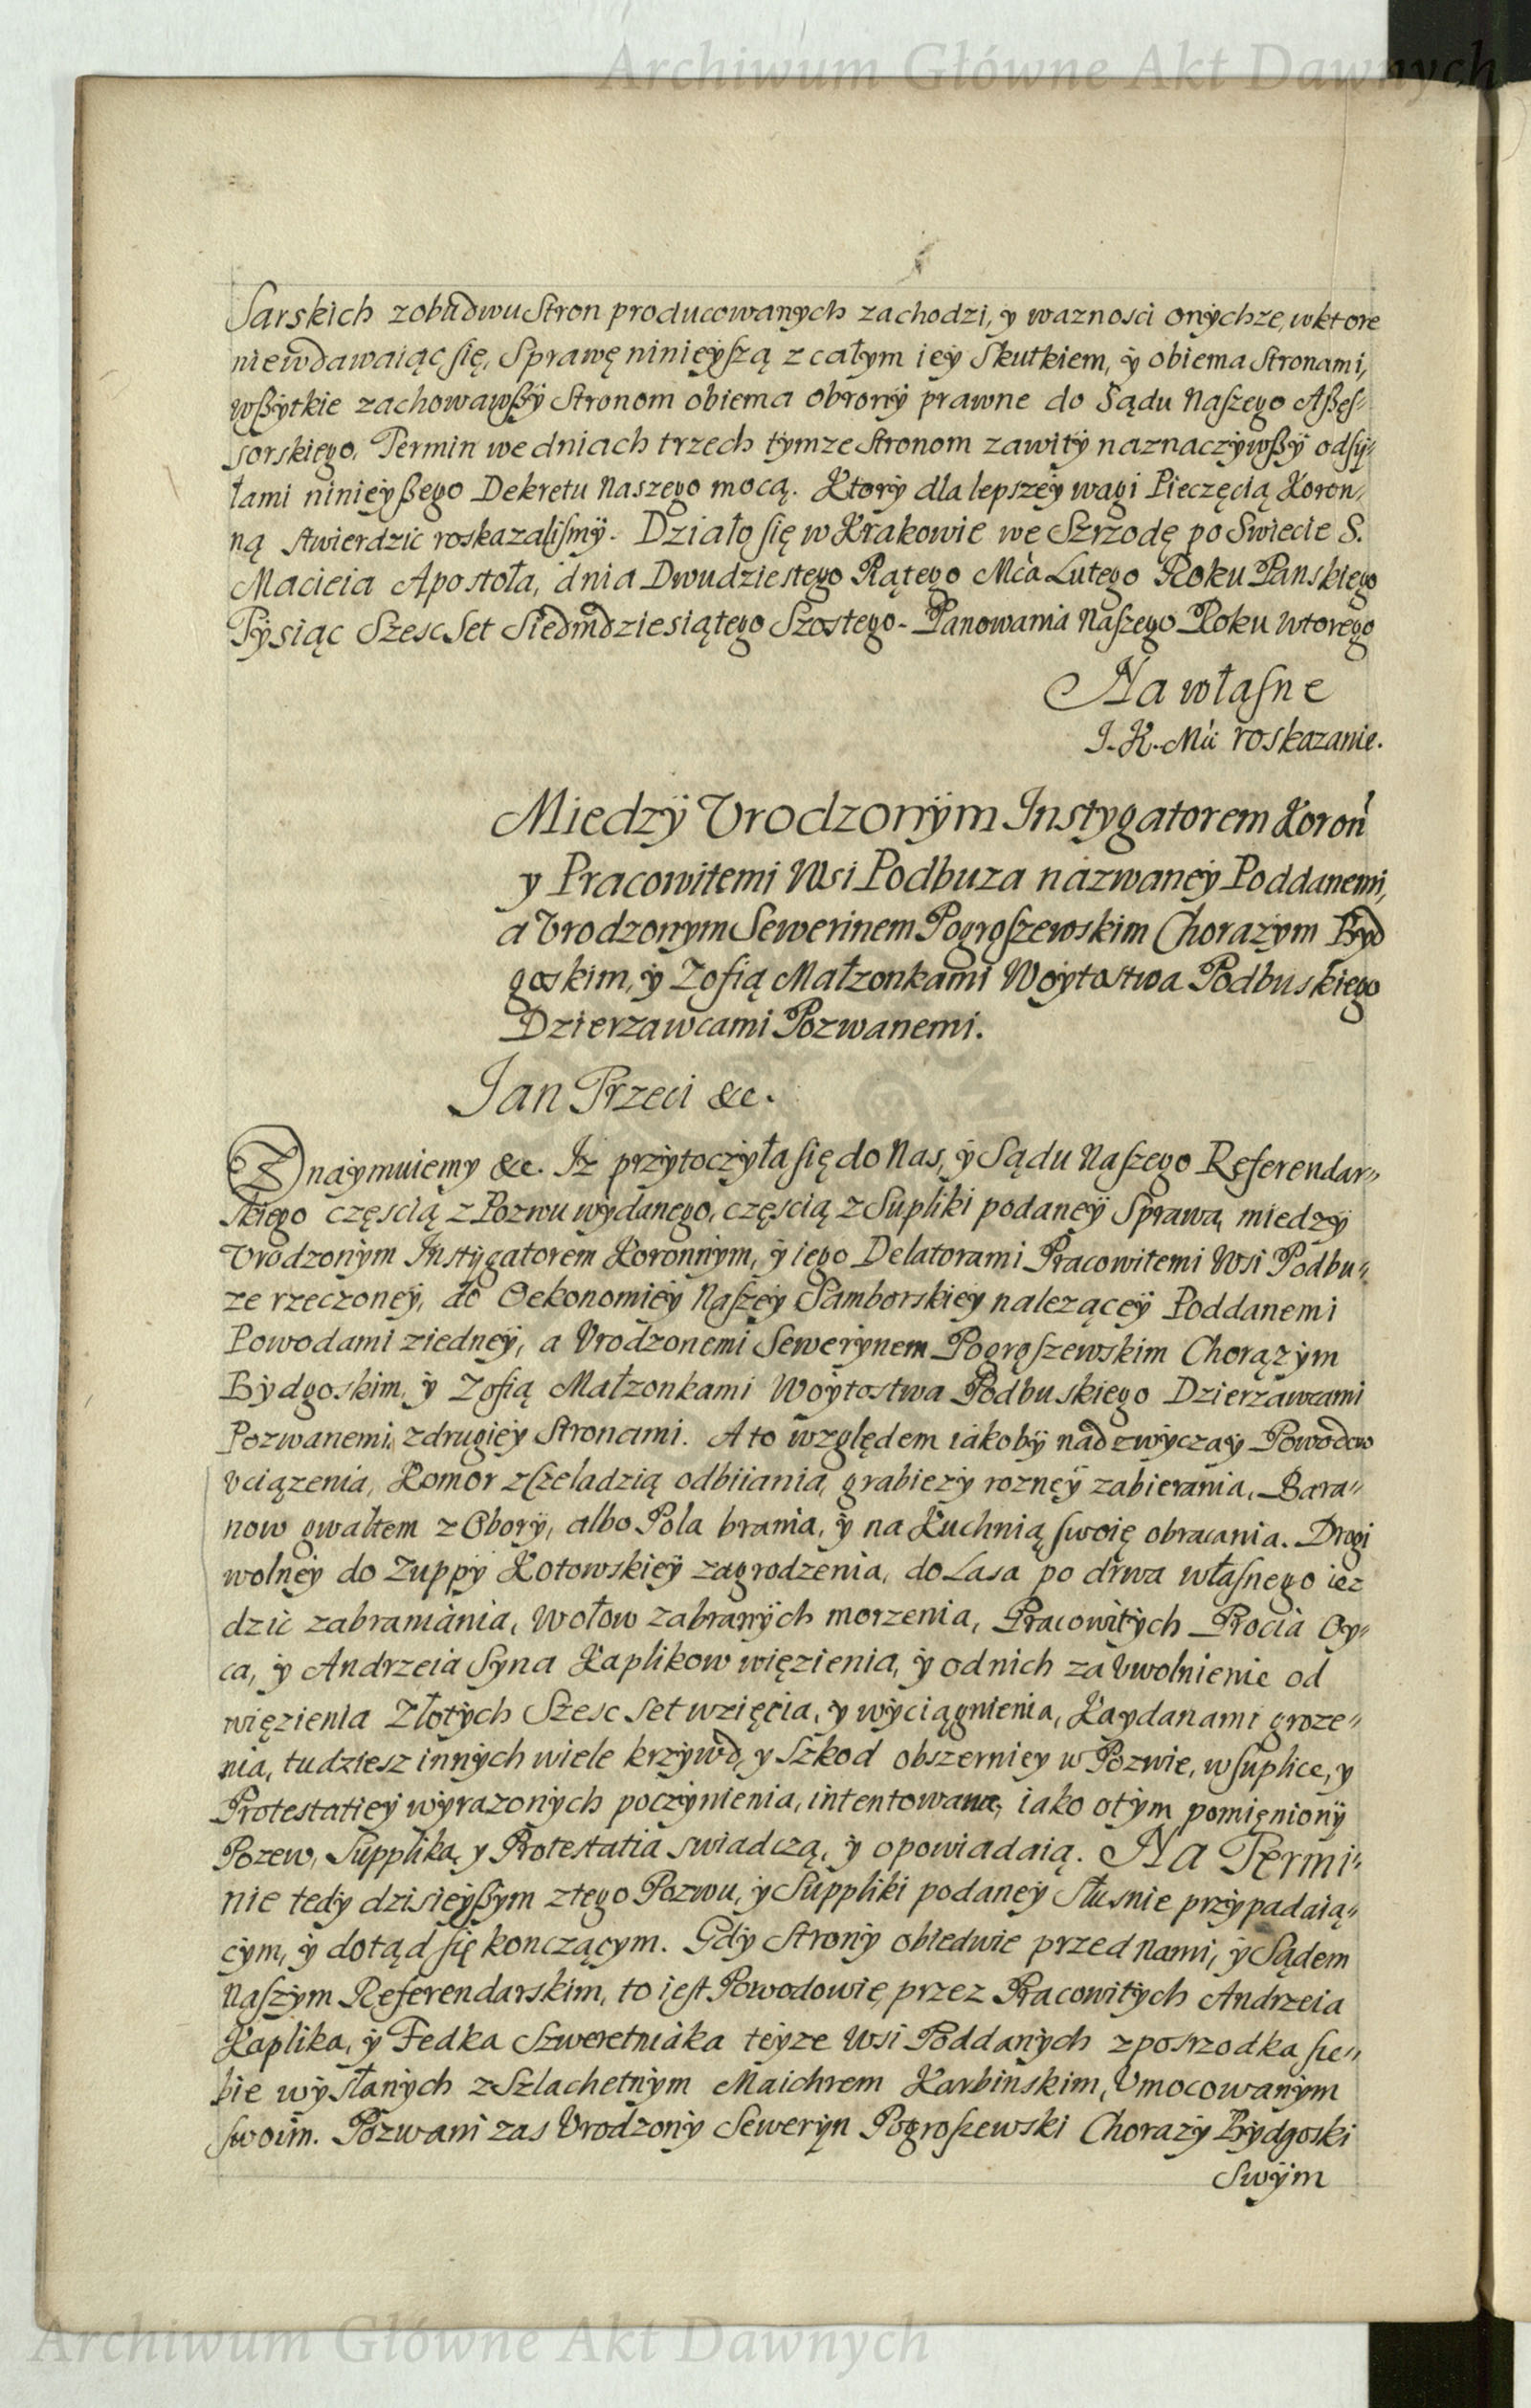 Archiwum Główne Akt Dawnych
Sarskich zobudwu Stron producowanych zachodzi, y waznosci onychze, wktore
niewdawaiąc się, Sprawę ninieyszą z całym iey Skutkiem, y obiema Stronami,
wszytkie zachowawszy Stronom obiema obrony prawne do Sądu Naszego Assęs-
sorskiego, Termin we dniach trzech tymze Stronom zawity naznaczywszy odsy-
łami ninieyszego Dekretu Naszego mocą. Ktory dla lepszey wagi Pieczęcią Koron-
ną stwierdzic roskazalismy. Działo się w Krakowie we Szrzodę po Swiecie S.
Macieia Apostoła, dnia Dwudziestego Piątego Mca Lutego Roku Panskiego
Tysiąc Szesc Set Siedmdziesiątego Szostego - Panowania Naszego Roku wtorego
Na własne
J. K. Mci roskazanie.
Miedzy Vrodzonym Instygatorem Koron
y Pracowitemi Wsi Podbuza nazwaney Poddanemi,
a Vrodzonym Sewerinem Pogroszewskim Chorazym Byd
goskim, y Zofią Małzonkami Woytostwa Podbuskiego
Dzierzawcami Pozwanemi.
Jan Trzeci &c.
Znaymuiemy &c. Iz przytoczyła się do Nas, y Sądu Naszego Referendar-
skiego częscią z Pozwu wydanego, częscią z Supliki podaney Sprawa, miedzy
Vrodzonym Instygatorem Koronnym, y iego Delatorami Pracowitemi Wsi Podbu-
ze rzeczoney, do Oekonomiey Naszey Samborskiey nalezącey Poddanemi
Powodami ziedney, a Vrodzonemi Sewerynem Pogroszewskim Chorązym
Bydgoskim, y Zofią Małzonkami Woytostwa Podbuskiego Dzierzawcami
Pozwanemi, zdrugiey Stronami. A to względem iakoby nad zwyczay Powodow
vciązenia, Komor z Czeladzią odbiiania, grabiezy rozney zabierania, Bara-
now gwałtem z Obory, albo Pola brania, y na Kuchnią swoię obracania. Drogi
wolney do Zuppy Kotowskiey zagrodzenia, do Lasa po drwa własnego iez
dzic zabraniania, Wołow zabranych morzenia, Pracowitych Procia Oy-
ca, y Andrzeia Syna Kaplikow więzienia, y od nich za Vwolnienie od
więzienia Złotych Szesc Set wzięcia, y wyciągnienia, Kaydanami groze-
nia, tudziesz innych wiele krzywd, y Szkod obszerniey w Pozwie, w suplice, y
Protestatiey wyrazonych poczynienia, intentowana, iako otym pomięniony
Pozew, Supplika, y Protestatia swiadczą, y opowiadaią. Na Termi-
nie tedy dzisieyszym ztego Pozwu, y Suppliki podaney słusnie przypadaią-
cym, y dotąd się konczącym. Gdy Strony obiedwie przed Nami, y Sądem
Naszym Referendarskim, to iest Powodowie, przez Pracowitych Andrzeia
Kaplika, y Fedka Szweretniaka teyze Wsi Poddanych zposrzodka sie-
bie wysłanych z Szlachetnym Maichrem Karbinskim, Vmocowanym
swoim. Pozwani zas Vrodzony Seweryn Pogroszewski Chorazy Bydgoski
Swym
Archiwum Główne Akt Dawnych